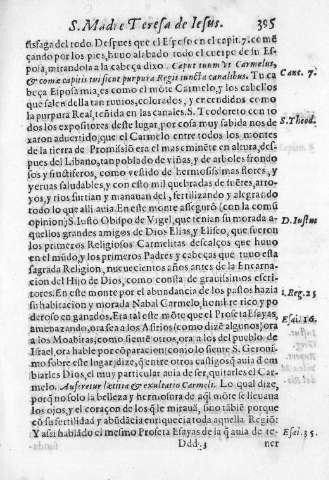 S. Madre Teresa de Iesus. 395
tisfaga del todo. Despues que el Esposo en el capit. 7. comẽ
çando por los pies, huuo alabado todo el cuerpo de su Es-
posa, mirandola a la cabeça dixo. Caput tuum vt Carmelus,
& comæ capitis tui sicut purpura Regis iuncta canalibus. Tu ca Cant. 7.
beça Esposa mia, es como el mõte Carmelo, y los cabellos
que salen della tan ruuios, colorados, y encendidos como
la purpura Real, teñida en las canales. S. Teodoreto con to
dos los expositores deste lugar, por cosa muy sabida nos de S. Theod.
xaron aduertido, que el Carmelo entre todos los montes
de la tierra de Promissiõ era el mas eminẽte en altura, des-
pues del Libano, tan poblado de viñas, y de arboles frondo
sos y fructiferos, como vestido de hermosissimas flores, y
yeruas saludables, y con esto mil quebradas de fuẽtes, arro-
yos, y rios surtian y manauan del, fertilizando y alegrando
todo lo que alli auia. En este monte asseguró (con la comũ
opinion) S. Iusto Obispo de Vrgel, que tenian su morada a- D. Iustus
quellos grandes amigos de Dios Elias, y Eliseo, que fueron
los primeros Religiosos Carmelitas descalços que huuo
en el mũdo, y los primeros Padres y cabeças que tuuo esta
sagrada Religion, nueuecientos años antes de la Encarna-
cion del Hijo de Dios, como consta de grauissimos escri-
tores. En este monte por el abundancia de los pastos hazia 1. Reg. 25
su habitacion y morada Nabal Carmelo, hombre rico, y po
deroso en ganados. Era tal este mõte que el Profeta Esayas,
amenazando, ora sea a los Asirios (como dizẽ algunos) ora Esai. 16.
a los Moabitas, como sientẽ otros, ora a los del pueblo de
Israel, ora hable por cõparacion, como lo siente S. Geroni-
mo sobre este lugar, dize, q̃ entre otros castigos q̃ auia d em
biarles Dios, el muy particular auia de ser, quitarles el Car-
melo. Auferetur lætitia & exultatio Carmeli. Lo qual dize,
porq̃ no solo la belleza y hermosura de aq̃l mõte se lleuaua
los ojos, y el coraçon de los q̃ le miraua, sino tãbiẽ porque
cõ su fertilidad y abũdãcia enriquecia toda aquella Regiõ:
Y assi hablãdo el mesmo Profeta Esayas de la q̃ auia de te- Esai. 35.
Ddd 3 ner